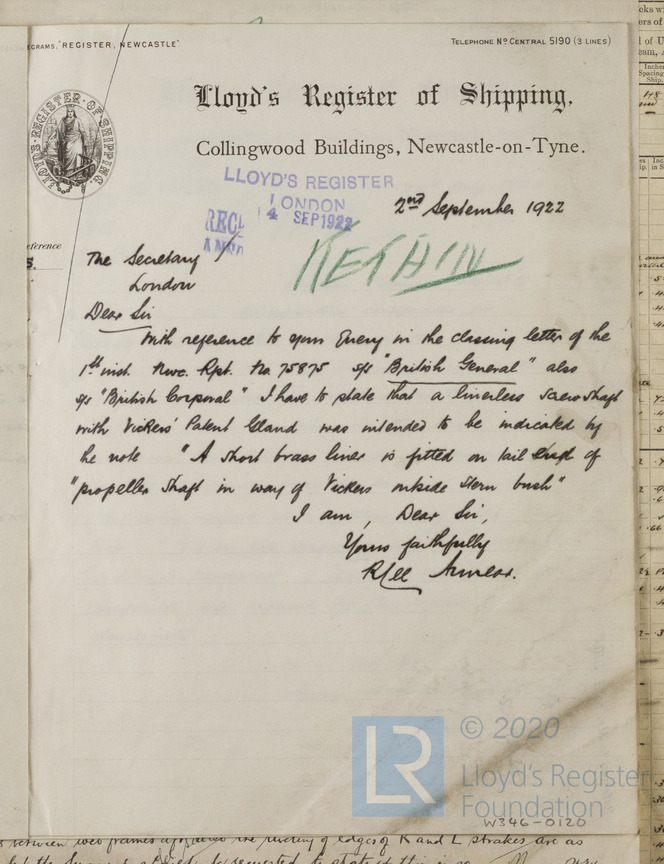 EGRAMS, "REGISTER, NEWCASTLE".
TELEPHONE No CENTRAL 5190 (3 LINES)
Lloyd's Register of Shipping,
LLOYD'S REGISTER OF SHIPPING.
Collingwood Buildings, Newcastle-on-Tyne.
LLOYD'S REGISTER
LONDON
RECD 4 SEP 1922
2nd September 1922
RETAIN
eference
The Secretary
London
Dear Sir
With reference to your Query in the classing letter of the
1st inst. Nwc. Rpt. No. 75875 S/S "British General" also
S/S "British Corporal" I have to state that a linerless screwshaft
with Vickers' Patent Gland was intended to be indicated by
he note "A short brass liner is fitted on tail end of
"propeller shaft in way of Vickers outside stern bush"
I am, Dear Sir,
Yours faithfully
LR
© 2020
Lloyd's Register
Foundation
W346-0120
between two frames the riveting of edges of K and L strakes are as